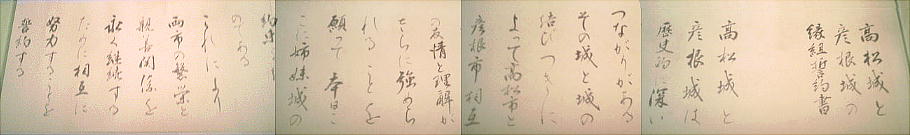 高松城と
彦根城の
縁組誓約書
高松城と
彦根城は
歴史的に深い
つながりがある
その城と城の
結びつきに
よって高松市と
彦根市相互
の友情と理解が
さらに強めら
れることを
願って本日こ
こに姉妹城の
約束
のである
これにより
両市の繁栄と
親善関係を
永く継続する
ために相互に
努力することを
誓約する